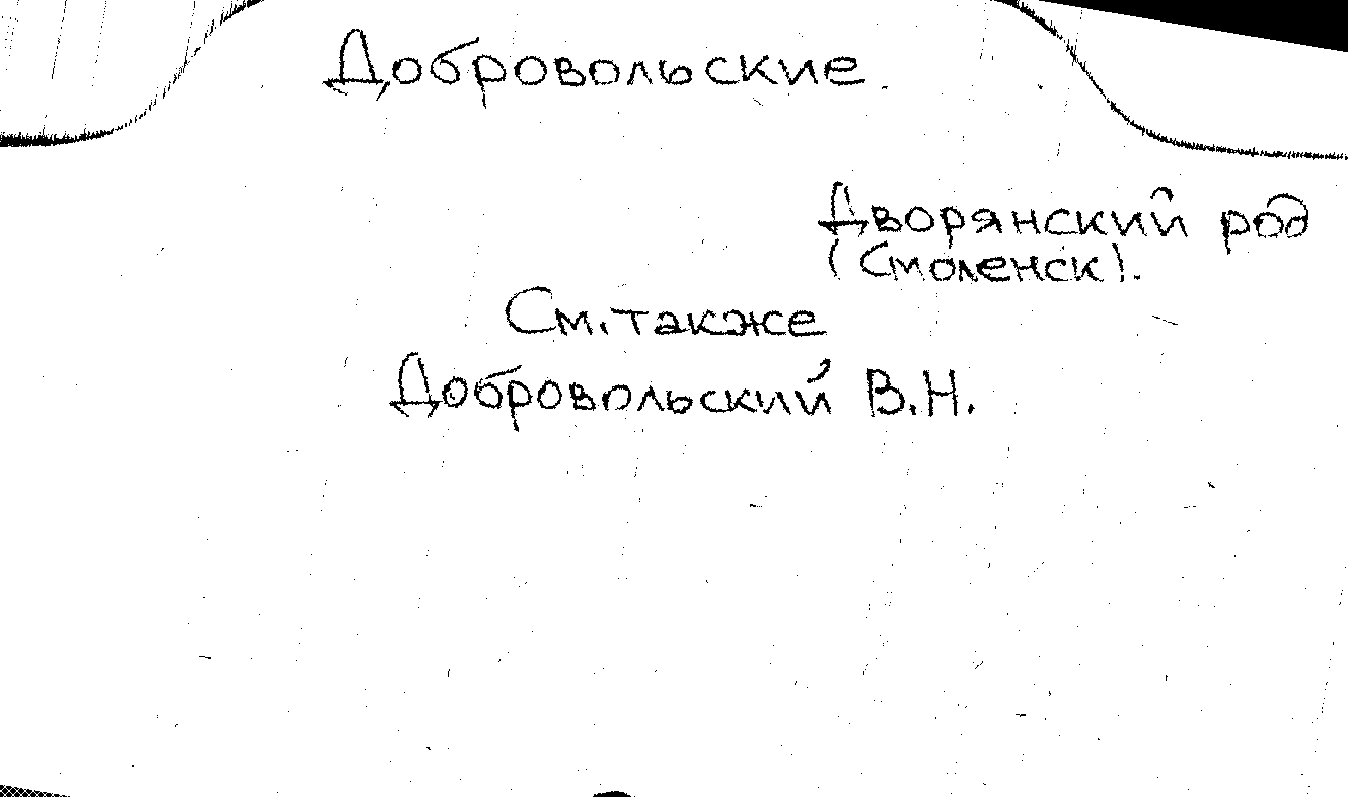 Добровольские
Дворянский род
(Смоленск).
См. также
Добровольский В.Н.